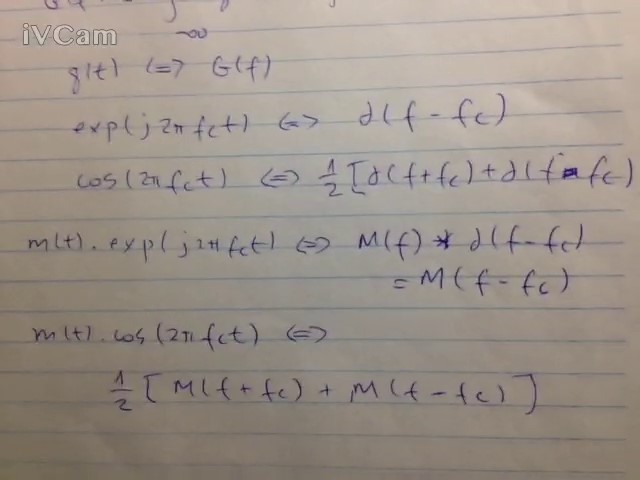 iVCam
-∞
g(t) <=> G(f)
exp(j2πfct) <=> ∂(f - fc)
cos(2πfct) <=> 1/2 [∂(f+fc) + ∂(f - fc)
m(t). exp(j2πfct) <=> M(f) * ∂(f-fc)
= M(f - fc)
m(t). cos(2πfct) <=>
1/2 [M(f+fc) + M(f-fc)]